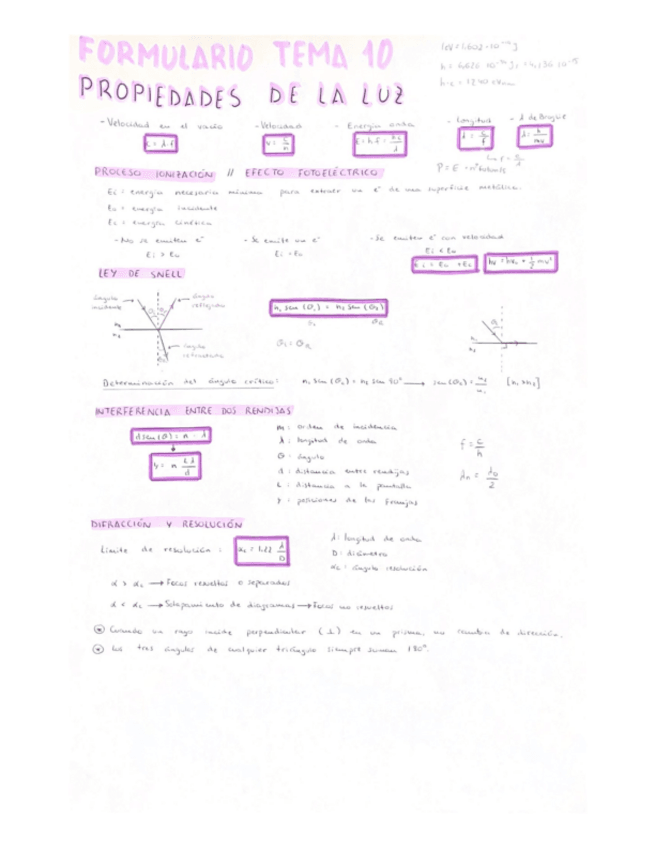 FORMULARIO TEMA 10
PROPIEDADES DE LA LUZ
h·c = 1240 eV·nm
- Velocidad en el vacío - Velocidad - Energía onda - Longitud - λ de Broglie
c = λ·f v = c/n E = h·f = hc/λ λ = c/f λ = h/mv
P = E · nº fotones
PROCESO IONIZACIÓN // EFECTO FOTOELÉCTRICO
Ei = energía necesaria mínima para extraer un e⁻ de una superficie metálica.
= energía incidente
Ec = energía cinética
- No se emiten e⁻ - Se emite un e⁻ - Se emiten e⁻ con velocidad
LEY DE SNELL
ángulo incidente ángulo reflejado
n₁ sen (θ₁) = n₂ sen (θ₂)
ángulo refractado
Determinación del ángulo crítico:
INTERFERENCIA ENTRE DOS RENDIJAS
d sen(θ) = m · λ
y = m Lλ/d
m: orden de incidencia
λ: longitud de onda
θ: ángulo
d: distancia entre rendijas
L: distancia a la pantalla
y: posiciones de las franjas
DIFRACCIÓN Y RESOLUCIÓN
Límite de resolución: αc = 1.22 λ/D
λ: longitud de onda
D: diámetro
αc: ángulo resolución
α > αc → Focos resueltos o separados
α < αc → Solapamiento de diagramas → Focos no resueltos
Cuando un rayo incide perpendicular (⊥) en un prisma, no cambia de dirección.
Los tres ángulos de cualquier triángulo siempre suman 180°.